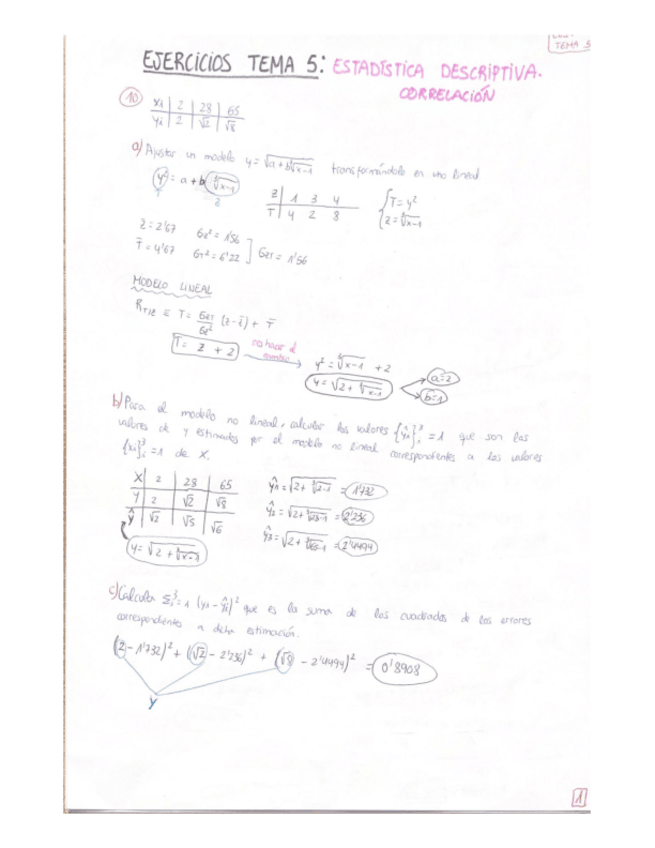 TEMA 5
EJERCICIOS TEMA 5: ESTADÍSTICA DESCRIPTIVA.
CORRELACIÓN
10
xi | 2 | 28 | 65
yi | 2 | √2 | √8
a) Ajustar un modelo y = √(a+b∛(x-1)) transformándolo en uno lineal
y² = a + b ∛(x-1)
Z | 1 3 4
T | 4 2 8
T = y²
z = ∛(x-1)
z̄ = 2'67 σz² = 1'56
T̄ = 4'67 σT² = 6'22 ] σzT = 1'56
MODELO LINEAL
R T/z ≡ T = σzT/σz² (z - z̄) + T̄
T = z + 2
deshacer el
cambio
y² = ∛(x-1) + 2
y = √(2 + ∛(x-1))
a=2
b=1
b) Para el modelo no lineal, calcular los valores {ŷi}³i=1 que son los
valores de y estimados por el modelo no lineal correspondientes a los valores
{xi}³i=1 de X.
X | 2 | 28 | 65
Y | 2 | √2 | √8
Ŷ | √2 | √5 | √6
y = √(2 + ∛(x-1))
ŷ1 = √(2+ ∛(2-1)) = 1'732
ŷ2 = √(2+ ∛(28-1)) = 2'236
ŷ3 = √(2+ ∛(65-1)) = 2'4494
c) Calcular Σ³i=1 (yi - ŷi)² que es la suma de los cuadrados de los errores
correspondientes a dicha estimación.
(2 - 1'732)² + (√2 - 2'236)² + (√8 - 2'4494)² = 0'8908
Y
1